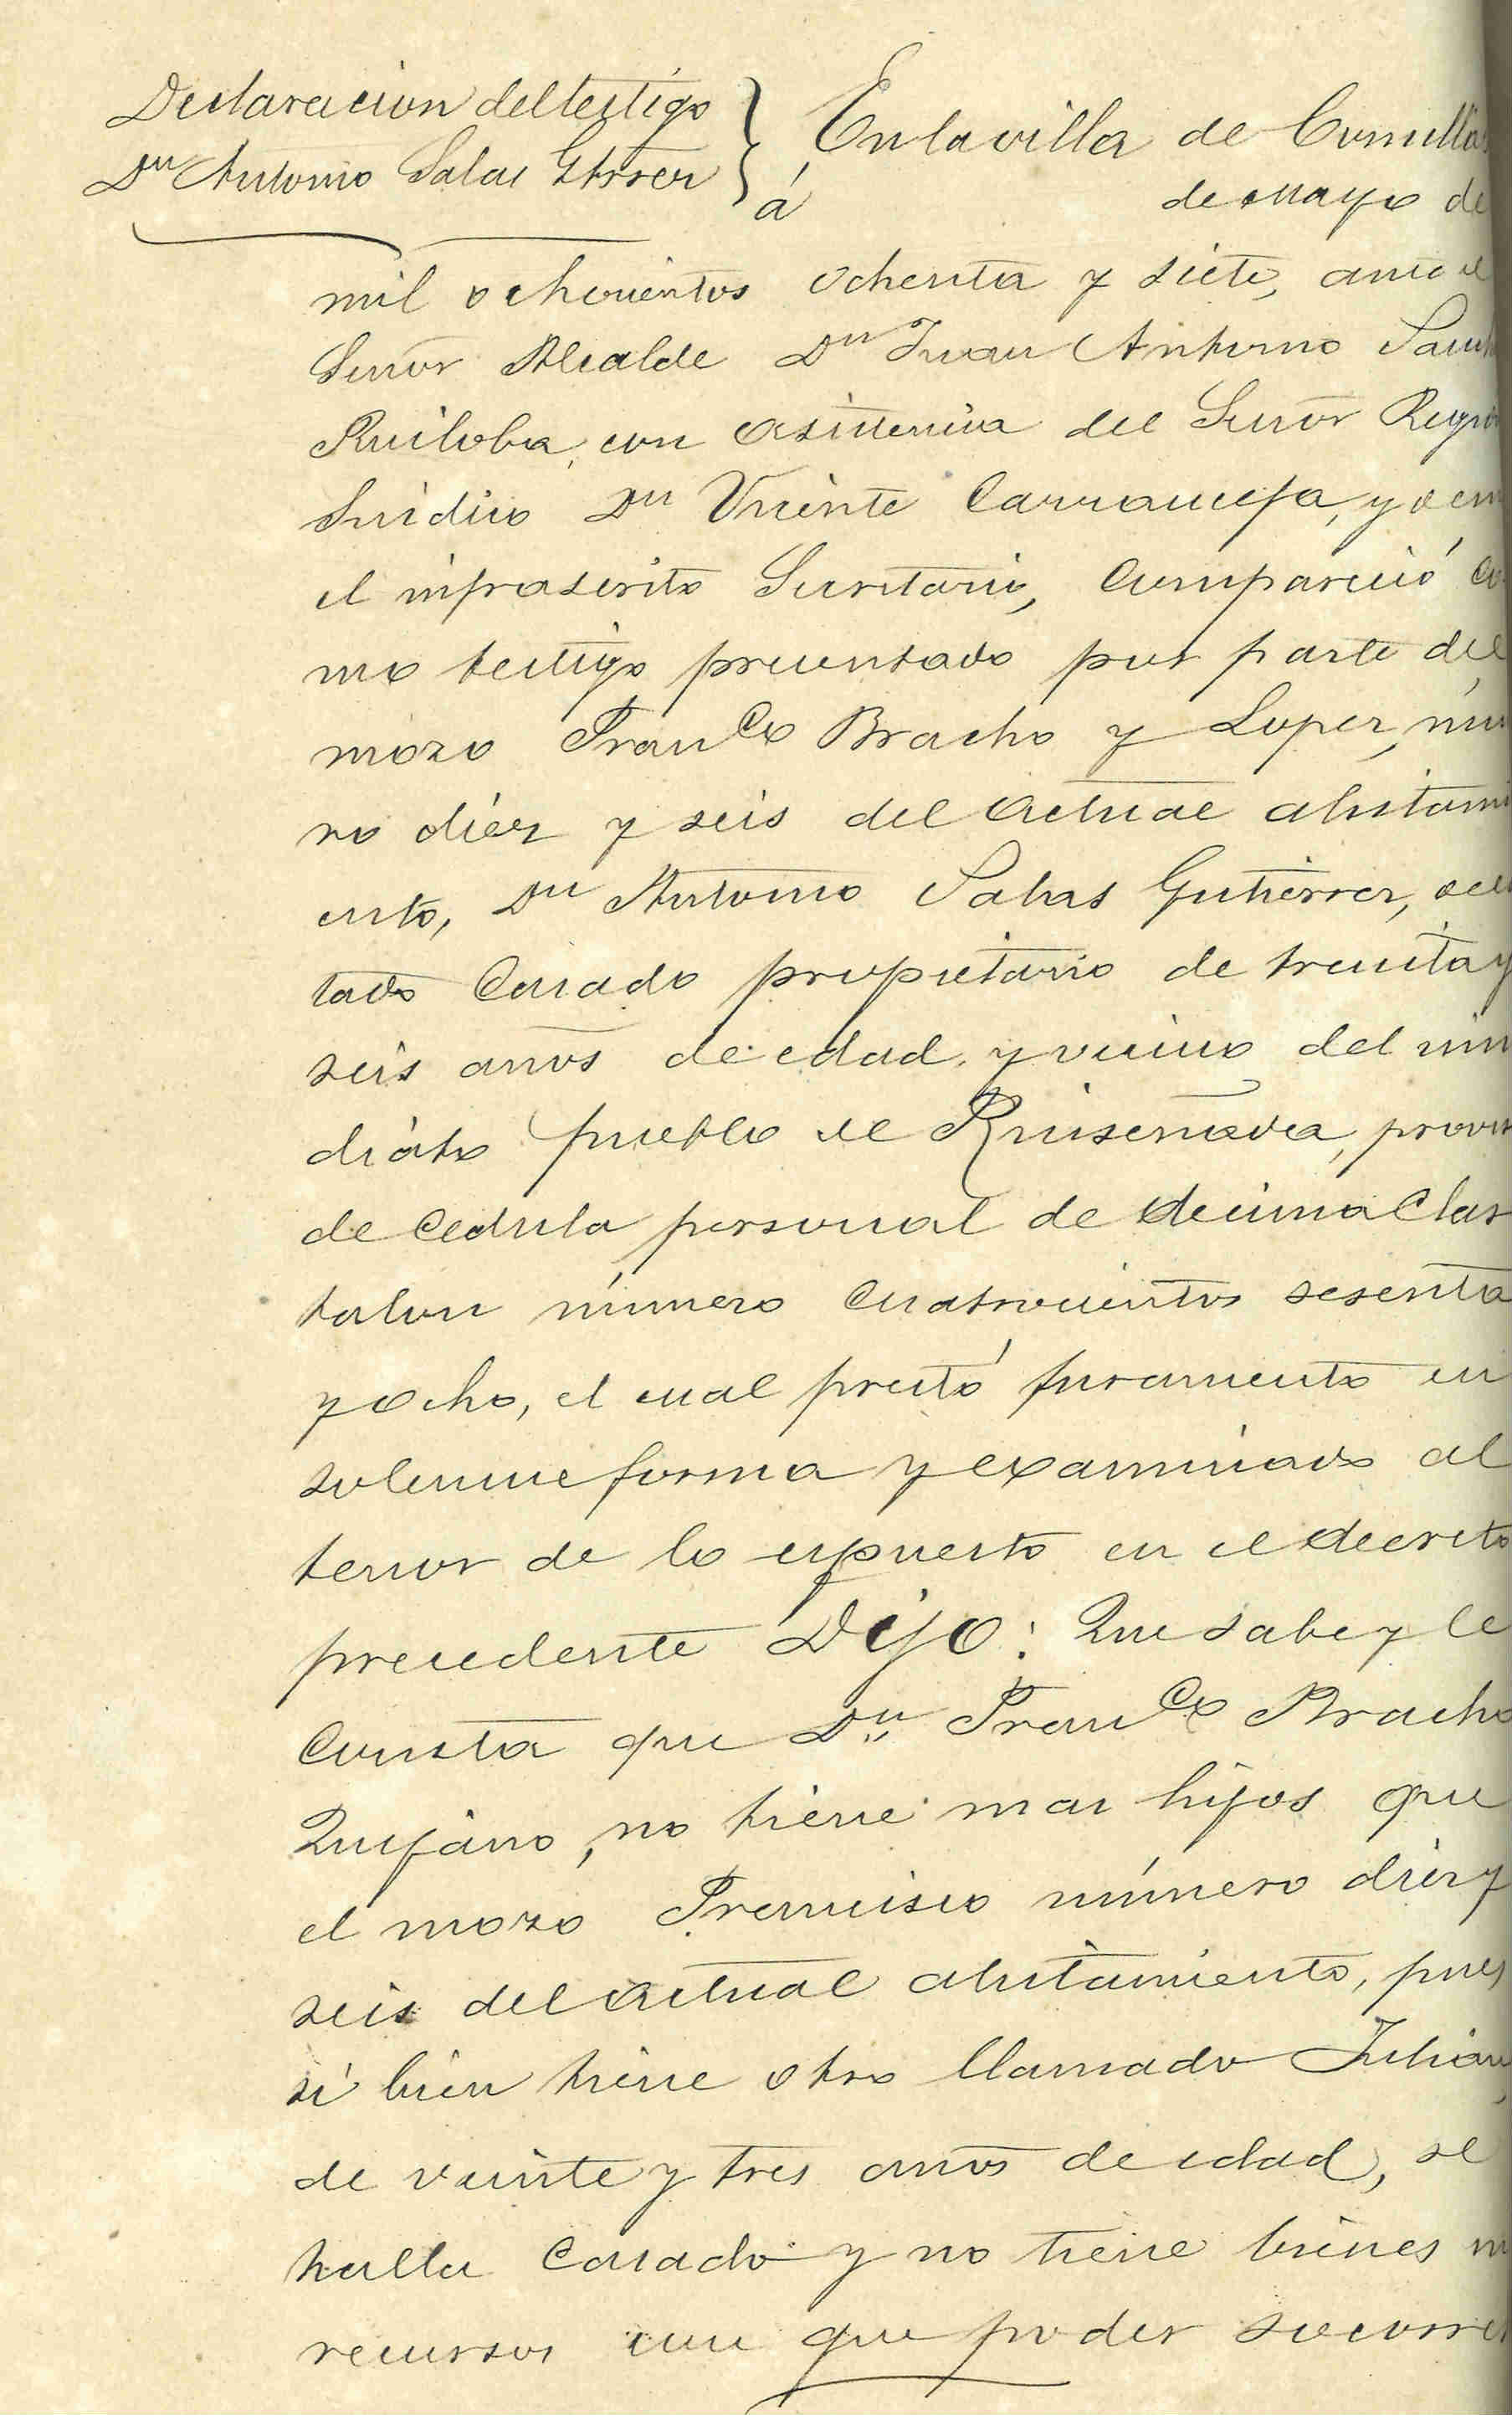 Declaracion del testigo
Dn Antonio Salas Gtrrez
En la villa de Comillas
á de Mayo de
mil ochocientos ochenta y siete, ante el
Señor Alcalde Dn Juan Antonio Sanch
Ruiloba, con asistencia del Señor Regid
Sindico Dn Vicente Carranceja, y de mi
el infrascrito Secretario, compareció co
mo testigo presentado por parte del
mozo Franco Bracho y Lopez, núm
ro diez y seis del actual alistami
ento, Dn Antonio Salas Gutierrez, de es
tado casado propietario de treinta y
seis años de edad, y vecino del inm
diato pueblo de Ruiseñada, provis
de cedula personal de decima clas
talon número cuatrocientos sesenta
y ocho, el cual prestó juramento en
solemne forma y examinado al
tenor de lo expuesto en el decreto
precedente Dijo: Que sabe y le
consta que Dn Franco Bracho
Quijano, no tiene mas hijos que
el mozo Francisco número diez y
seis del actual alistamiento, pues
si bien tiene otro llamado Julian,
de veinte y tres años de edad, se
halla casado y no tiene bienes ni
recursos con que poder socorrer